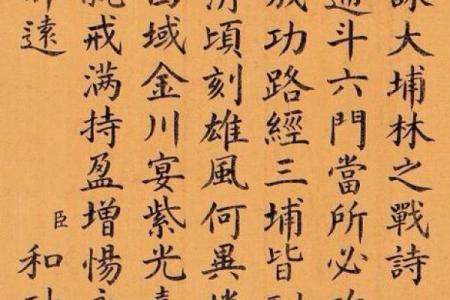 詠大埔林之戰詩
斗六門當所必
成功路經三埔皆
頃刻雄風何異
域金川宴紫光
戒滿持盈增惕
遠
臣 和